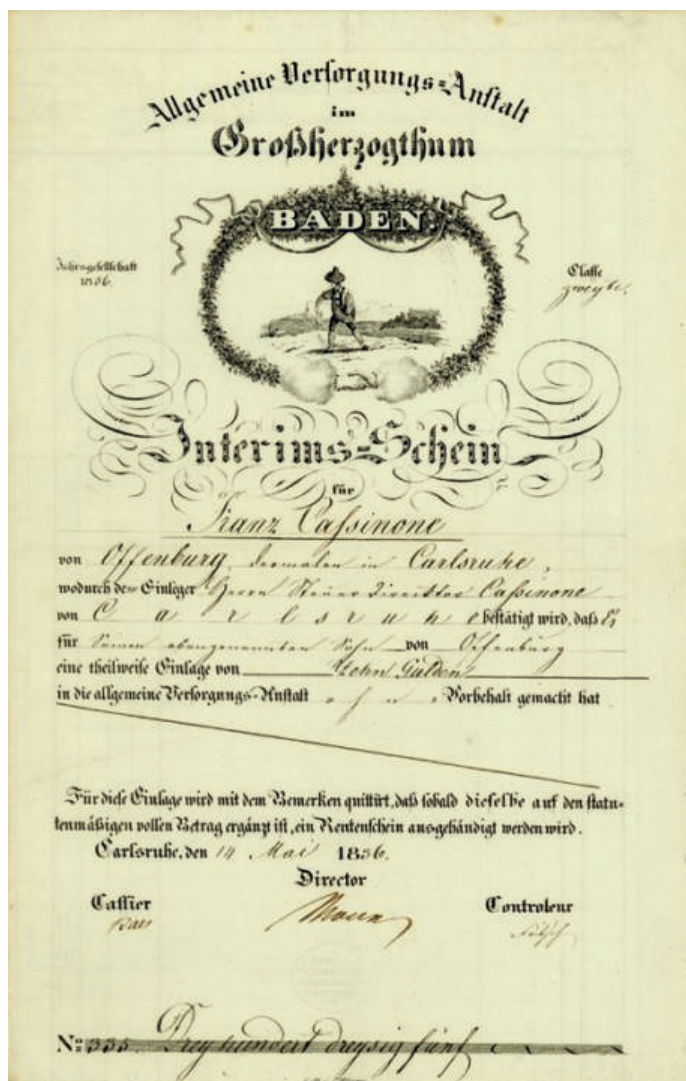 Allgemeine Versorgungs=Anstalt
im
Großherzogthum
BADEN.
Jahresgesellschaft
1836.
Classe
zweyte.
Interims=Schein
für
Franz Caßinone
von Offenburg, dermalen in Carlsruhe,
wodurch dem Einleger Herrn Steuer Direktor Caßinone
von Carlsruhe bestätigt wird, daß Er
für Seinen obengenannten Sohn von Offenburg
eine theilweise Einlage von Zehn Gulden
in die allgemeine Versorgungs=Anstalt ohne Vorbehalt gemacht hat
Für diese Einlage wird mit dem Bemerken quittirt, daß sobald dieselbe auf den statu=
tenmäßigen vollen Betrag ergänzt ist, ein Rentenschein ausgehändigt werden wird.
Carlsruhe, den 14 Mai 1836.
Director
Cassier
Controleur
No. 335. Drey hundert dreysig fünf